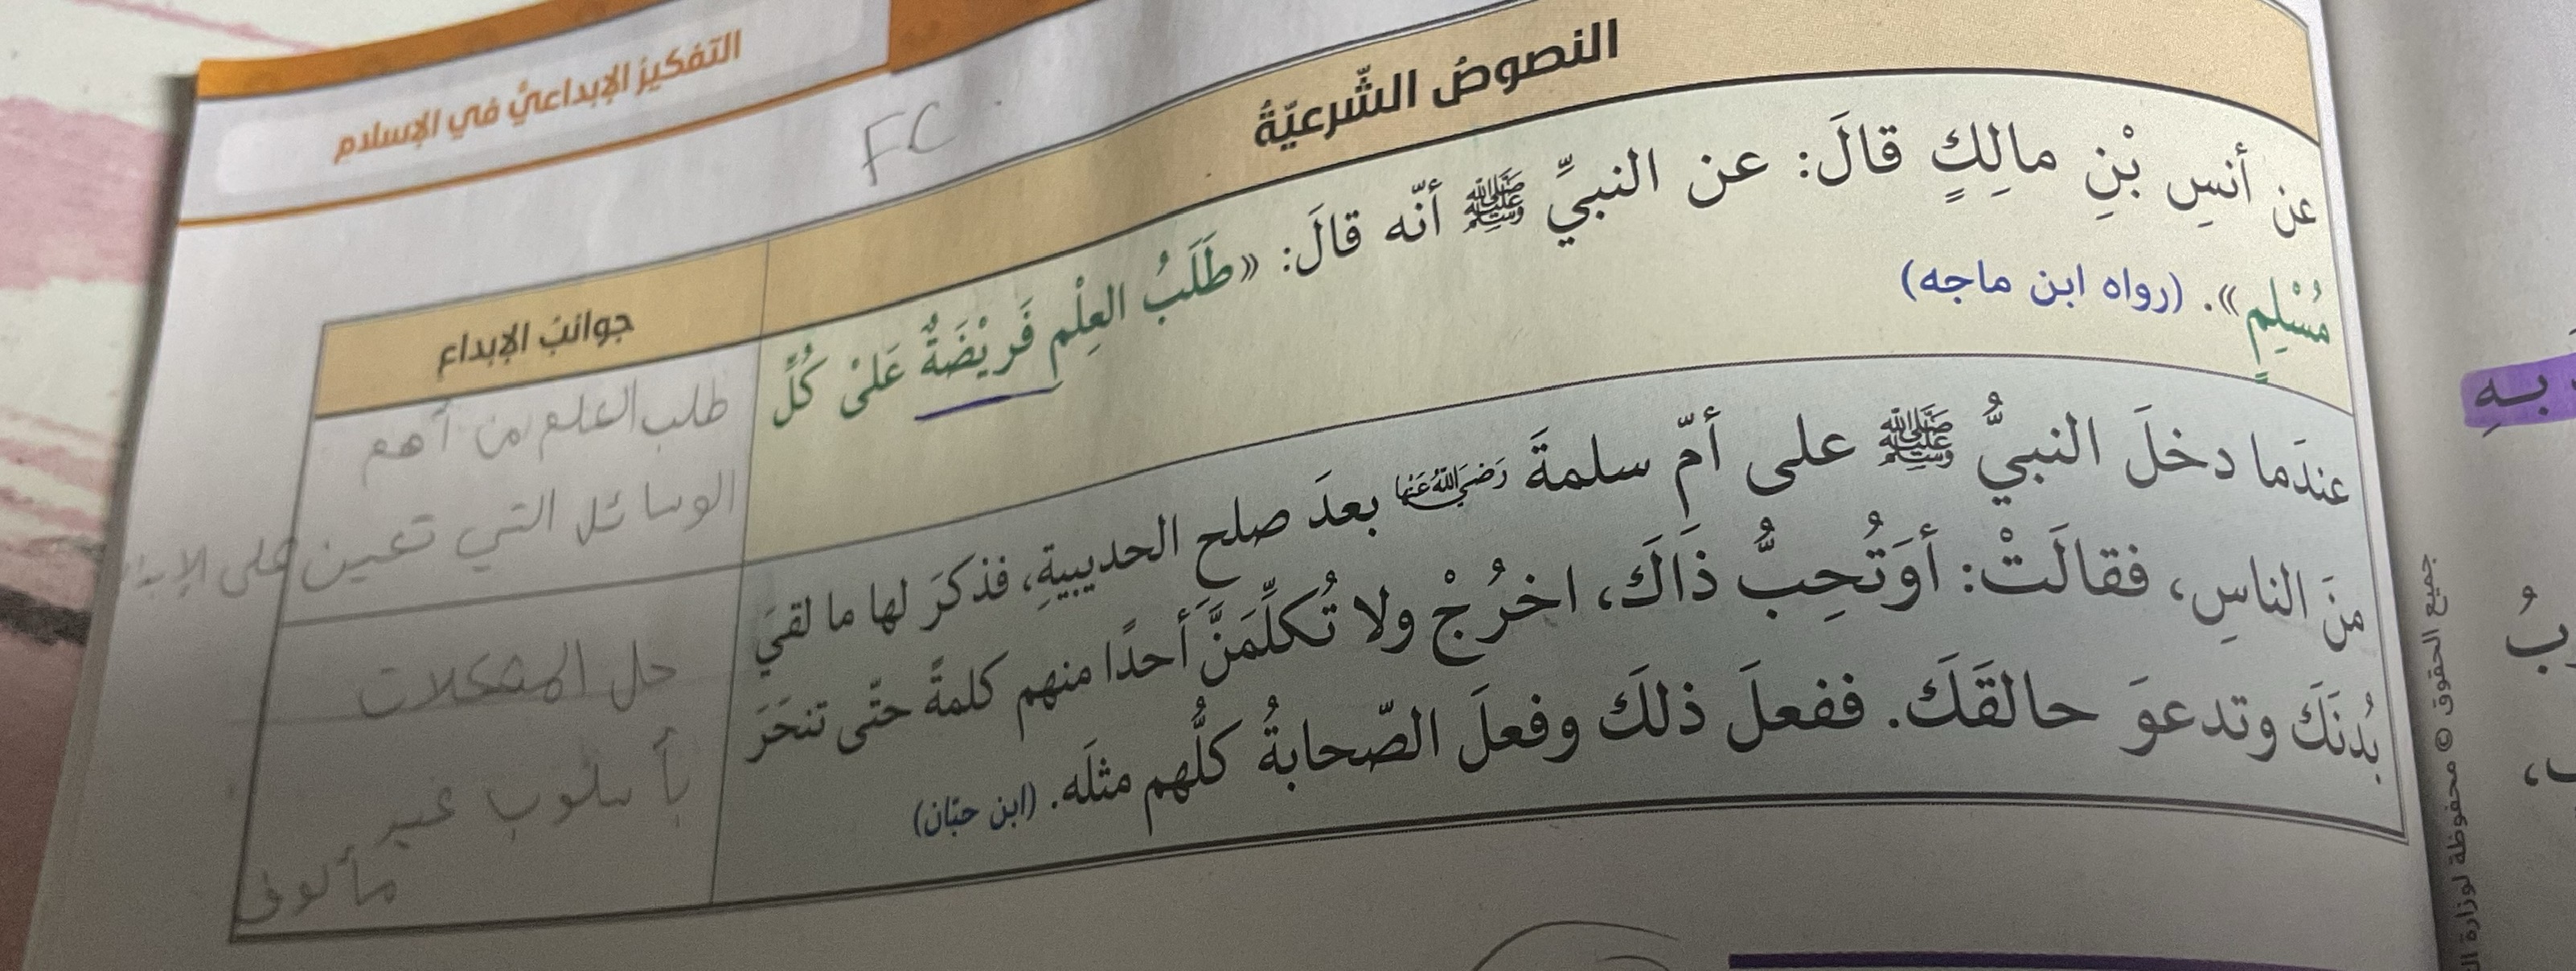 التفكيرُ الإبداعيُّ في الإسلام
FC
النصوصُ الشّرعيّةُ
جوانبُ الإبداع
عن أنسِ بْنِ مالِكٍ قالَ: عن النبيِّ ﷺ أنّه قالَ: «طَلَبُ العِلْمِ فَرِيْضَةٌ عَلىْ كُلِّ
مُسْلِمٍ». (رواه ابن ماجه)
طلب العلم من أهم
الوسائل التي تعين على
عندَما دخلَ النبيُّ ﷺ على أمّ سلمةَ رَضِيَ اللَّهُ عَنْهَا بعدَ صلحِ الحديبيةِ، فذكرَ لها ما لقيَ
منَ الناسِ، فقالَتْ: أوَتُحِبُّ ذَاكَ، اخرُجْ ولا تُكلِّمَنَّ أحدًا منهم كلمةً حتّى تنحَرَ
بُدنَكَ وتدعوَ حالقَكَ. ففعلَ ذلكَ وفعلَ الصّحابةُ كلُّهم مثلَه. (ابن حبّان)
حل المشكلات
بأسلوب غير
مألوف
بـهِ
جميع الحقوق © محفوظة لوزارة